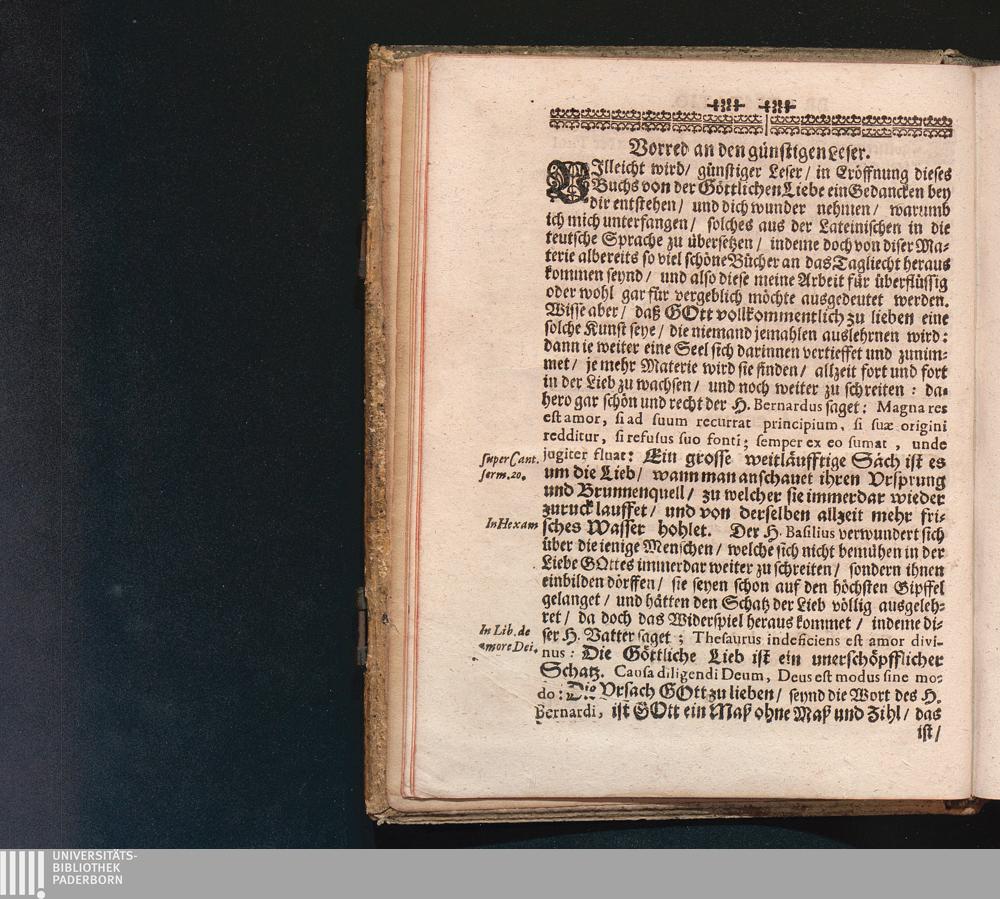 Vorred an den günstigen Leser.
VIlleicht wird/ günstiger Leser/ in Eröffnung dieses
Buchs von der Göttlichen Liebe ein Gedancken bey
dir entstehen/ und dich wunder nehmen/ warumb
ich mich unterfangen/ solches aus der Lateinischen in die
teutsche Sprache zu übersetzen/ indeme doch von diser Ma-
terie albereits so viel schöne Bücher an das Tagliecht heraus
kommen seynd/ und also diese meine Arbeit für überflüssig
oder wohl gar für vergeblich möchte ausgedeutet werden.
Wisse aber/ daß GOtt vollkommentlich zu lieben eine
solche Kunst seye/ die niemand jemahlen auslehrnen wird:
dann ie weiter eine Seel sich darinnen vertieffet und zunim-
met/ je mehr Materie wird sie finden/ allzeit fort und fort
in der Lieb zu wachsen/ und noch weiter zu schreiten: da-
hero gar schön und recht der H. Bernardus saget: Magna res
est amor, si ad suum recurrat principium, si suæ origini
redditur, si refusus suo fonti; semper ex eo sumat, unde
jugiter fluat: Ein grosse weitläufftige Sach ist es
super Cant.
serm. 20.
um die Lieb/ wann man anschauet ihren Vrsprung
und Brunnenquell/ zu welcher sie immerdar wieder
zuruck lauffet/ und von derselben allzeit mehr fri-
In Hexam
sches Wasser hohlet. Der H. Basilius verwundert sich
über die ienige Menschen/ welche sich nicht bemühen in der
Liebe GOttes immerdar weiter zu schreiten/ sondern ihnen
einbilden dörffen/ sie seyen schon auf den höchsten Gipffel
gelanget/ und hätten den Schatz der Lieb völlig ausgeleh-
ret/ da doch das Widerspiel heraus kommet/ indeme di-
In Lib. de
amore Dei.
ser H. Vatter saget; Thesaurus indeficiens est amor divi-
nus: Die Göttliche Lieb ist ein unerschöpfflicher
Schatz. Causa diligendi Deum, Deus est modus sine mo-
do: Die Vrsach GOtt zu lieben/ seynd die Wort des H.
Bernardi, ist GOtt ein Maß ohne Maß und Zihl/ das
ist/
UNIVERSITÄTS-
BIBLIOTHEK
PADERBORN